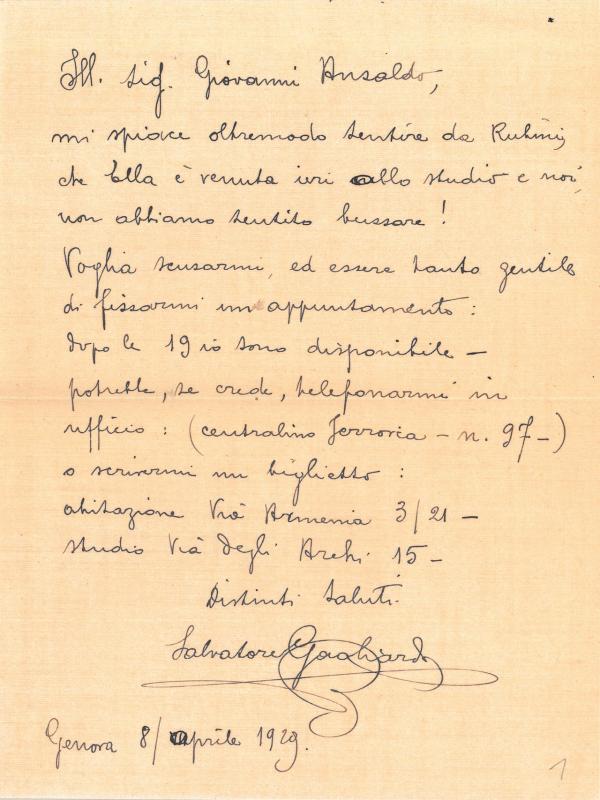 Ill. Sig. Giovanni Ansaldo,
mi spiace oltremodo sentire da Rubini,
che Ella è venuta ieri allo studio e noi,
non abbiamo sentito bussare!
Voglia scusarmi, ed essere tanto gentile
di fissarmi un appuntamento:
dopo le 19 io sono disponibile —
potrebbe, se crede, telefonarmi in
ufficio: (centralino Ferrovia - n. 97 -)
o scrivermi un biglietto:
abitazione Via Armenia 3/21 —
studio Via degli Archi 15 —
Distinti Saluti.
Salvatore Gagliardo
Genova 8/ Aprile 1929.
1